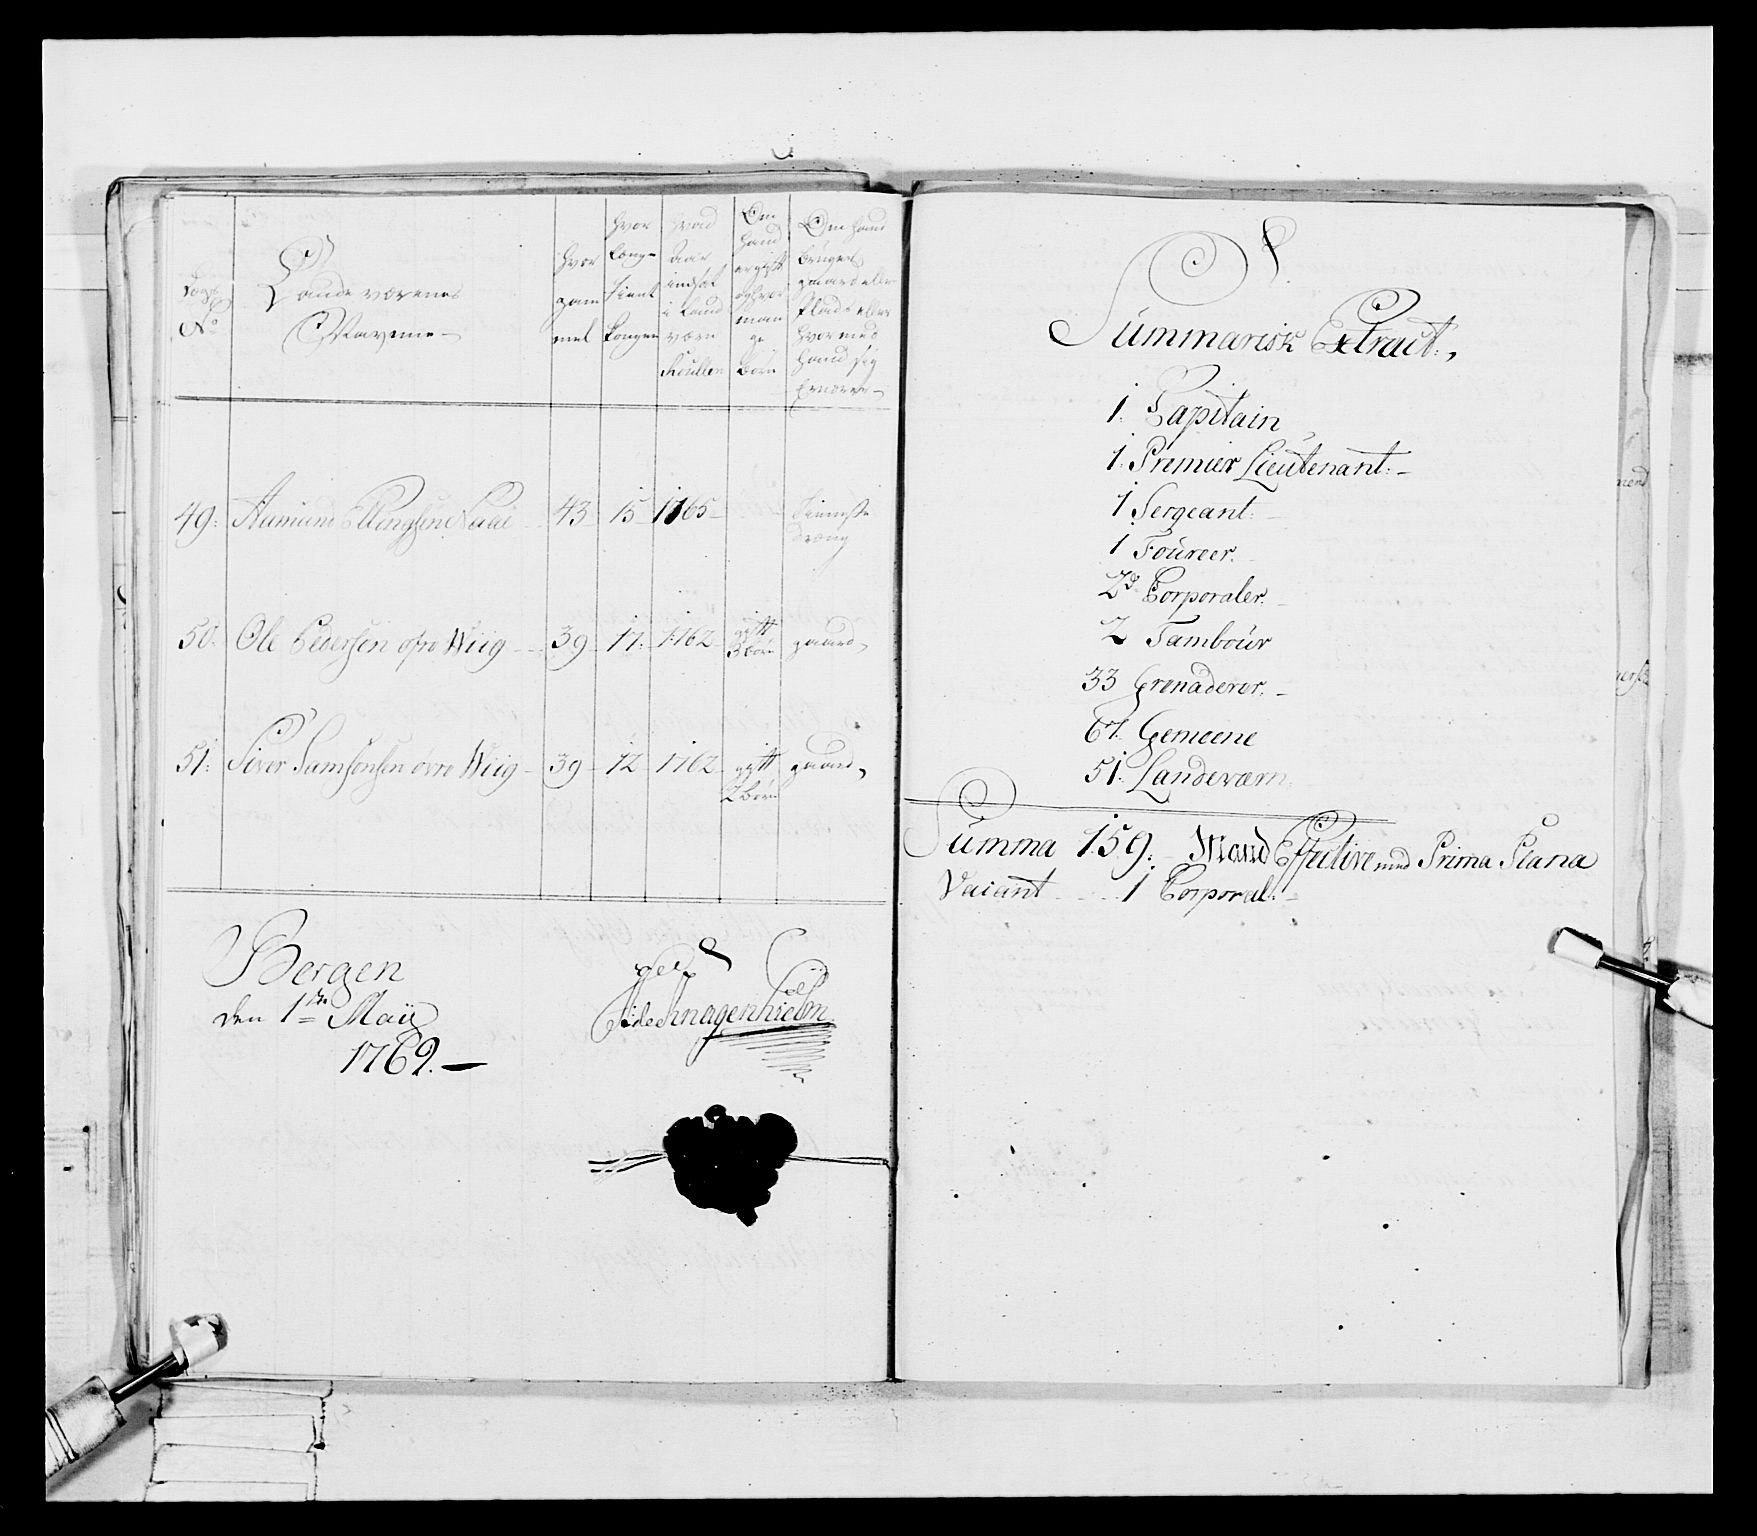 Lægs No
Landeværnes
Navne
Hvor
gam
mel
Hvor
længe
tient
kongen
hvad
Aar
indsat
i Land
værn
Roullen
Om
hand
er gift
og hvor
man
ge
børn
Om hand
bruger
gaard eller
Plads eller
hvormed
hand sig
Ernærer
49: Aamund Ellingsen 43 15 1765 Tieneste
dreng
50. Ole Pedersen øfre Wiig 39 17. 1762 gift
3 børn gaard
51: Siver Samsonsen øvre Wiig 39 12 1762 gift
2 børn gaard
Bergen
den 1de Maÿ
1769.
Summarisk Extract.
1. Capitain
1. Premier Lieutenant.
1 Sergeant.
1 Foureer.
2de Corporaler.
2 Tambour
33 Grenaderer.
67. Gemeene
51. Landeværn
Summa 159. Mand Effective med Prima Plana
Vacant 1 Corporal.